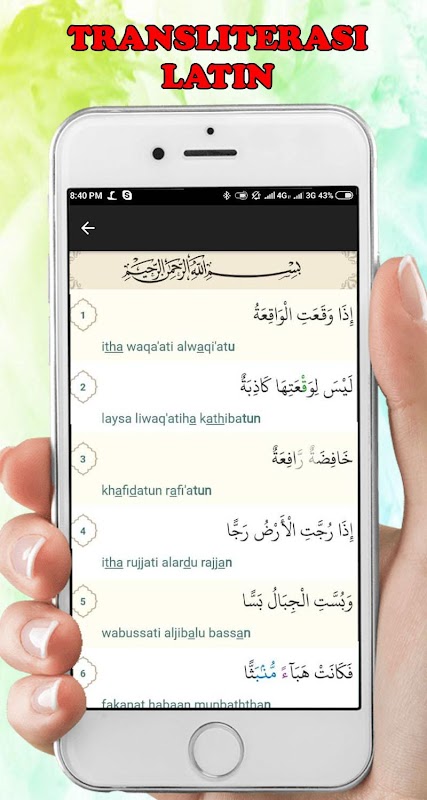 TRANSLITERASI
LATIN
8:40 PM 4G 3G 43%
بِسْمِ اللَّهِ الرَّحْمَٰنِ الرَّحِيمِ
1
إِذَا وَقَعَتِ الْوَاقِعَةُ
itha waqa'ati alwaqi'atu
2
لَيْسَ لِوَقْعَتِهَا كَاذِبَةٌ
laysa liwaq'atiha kathibatun
3
خَافِضَةٌ رَّافِعَةٌ
khafidatun rafi'atun
4
إِذَا رُجَّتِ الْأَرْضُ رَجًّا
itha rujjati alardu rajjan
5
وَبُسَّتِ الْجِبَالُ بَسًّا
wabussati aljibalu bassan
6
فَكَانَتْ هَبَآءً مُّنۢبَثًّا
fakanat habaan munbaththan